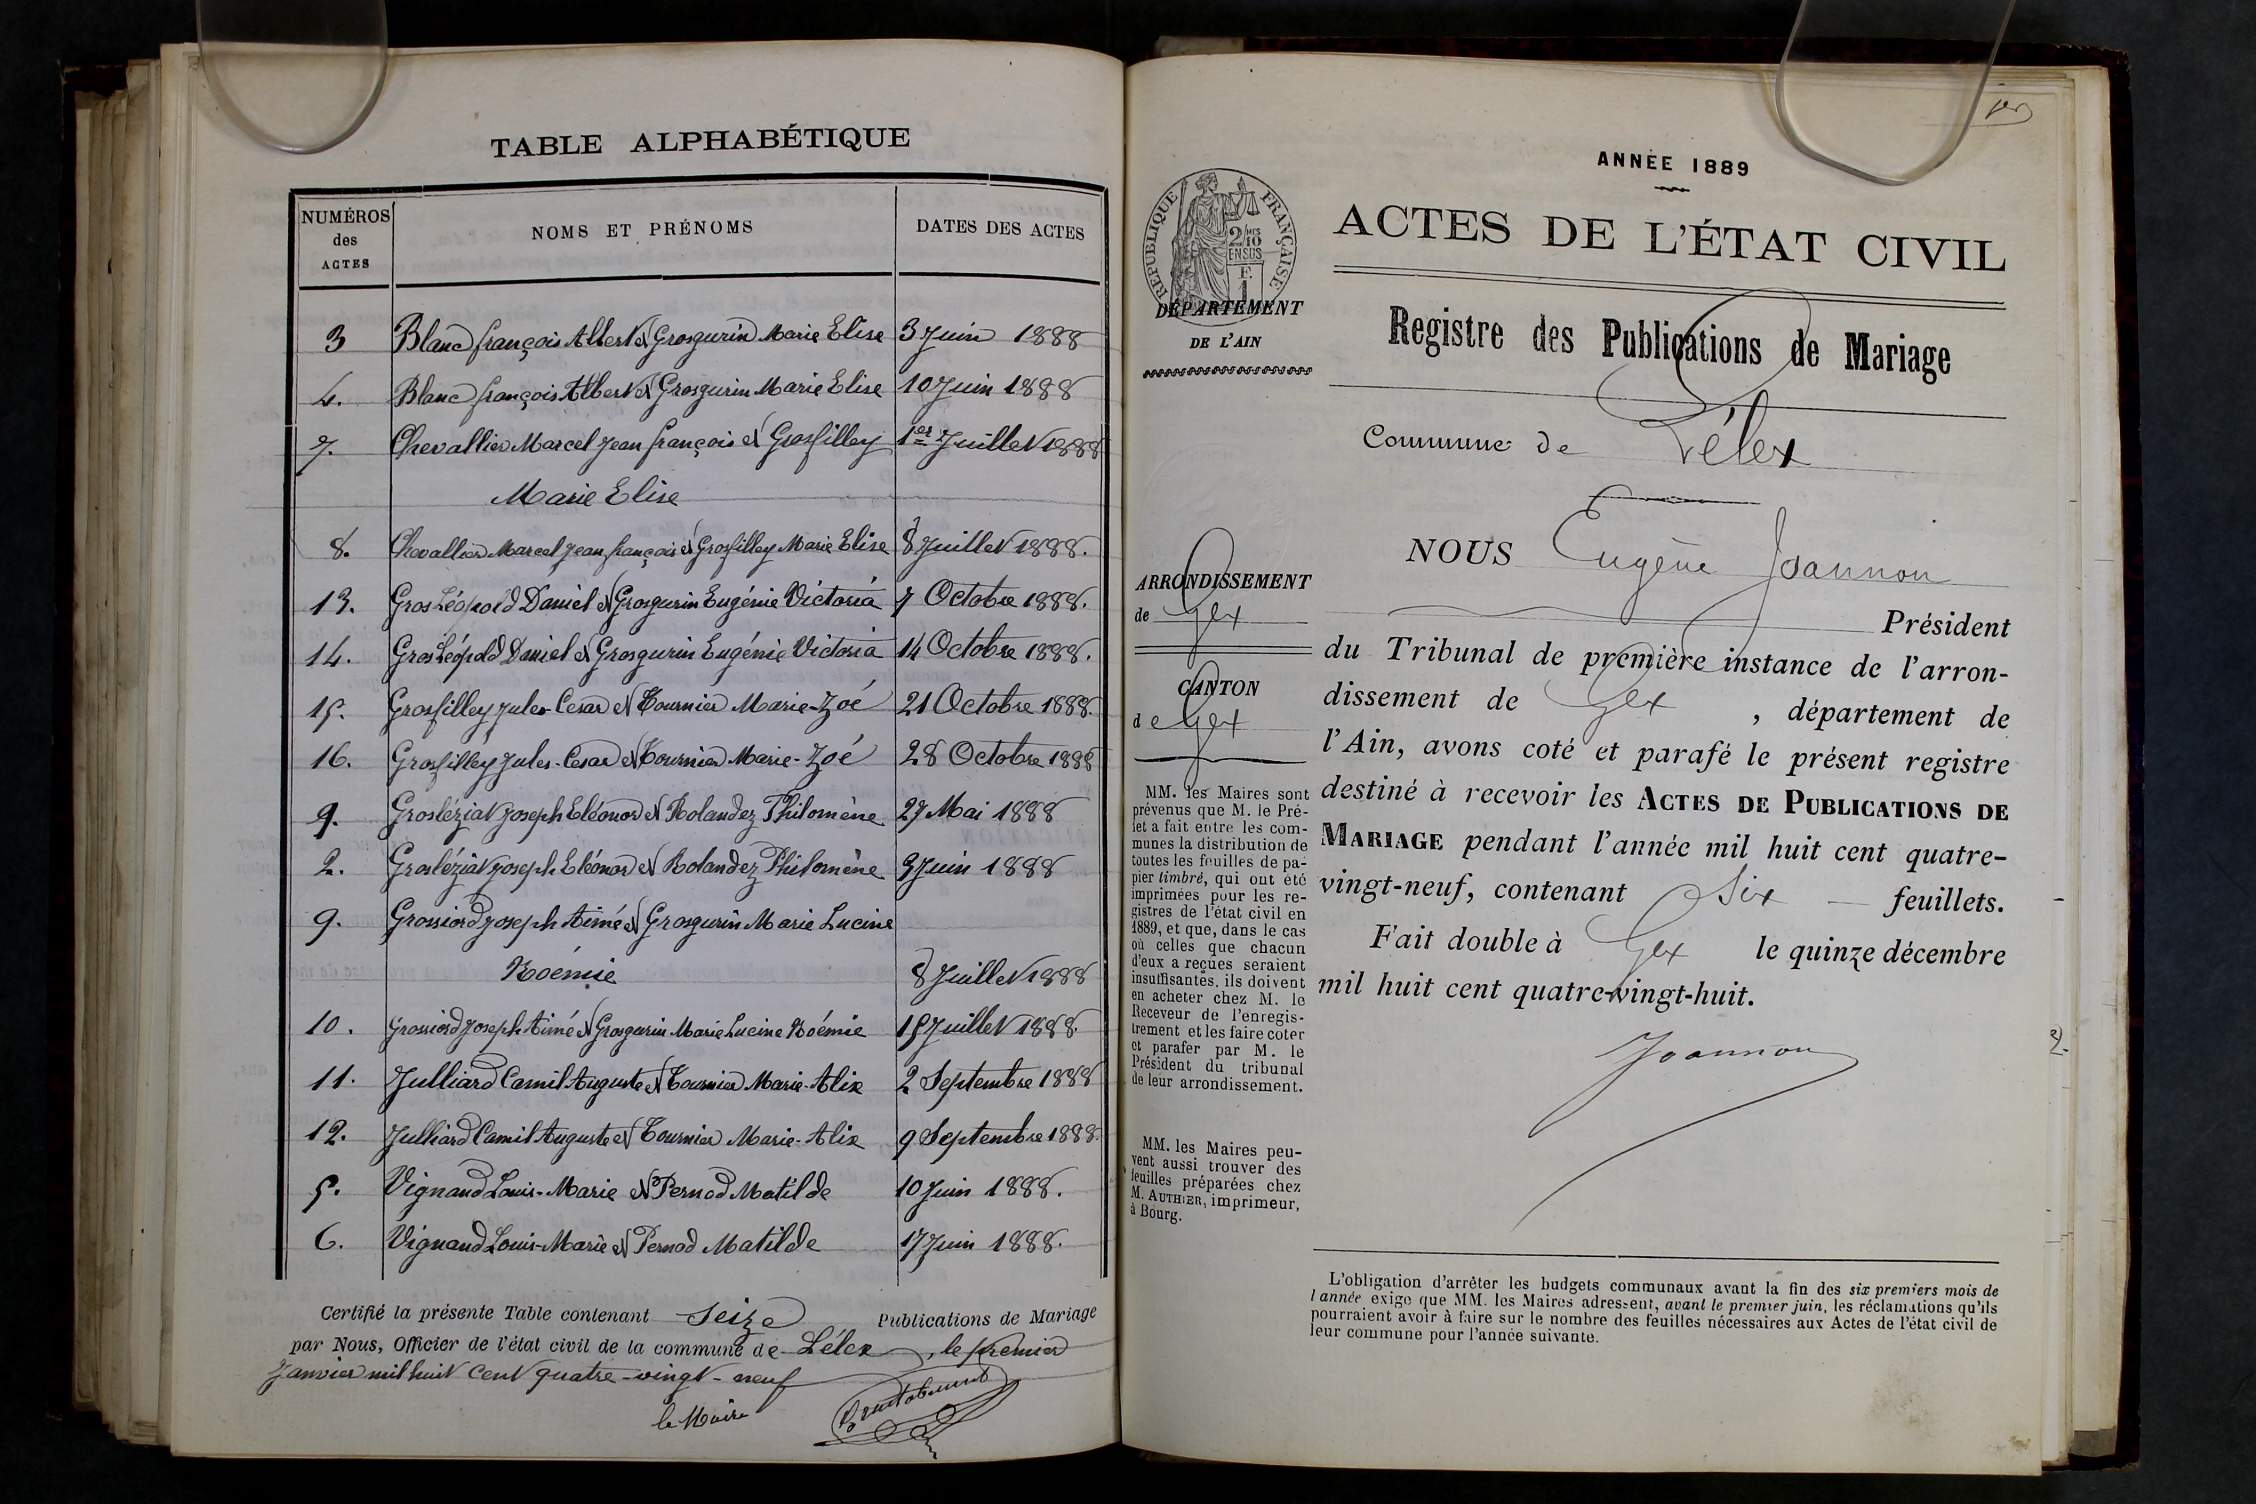 TABLE ALPHABÉTIQUE
NUMÉROS des ACTES
NOMS ET PRÉNOMS
DATES DES ACTES
3 Blanc françois Albert et Grosgurin Marie Elise 3 Juin 1888
4. Blanc françois Albert et Grosgurin Marie Elise 10 Juin 1888
7. Chevallier Marcel Jean françois et Grosfilley 1er Juillet 1888
Marie Elise
8. Chevallier Marcel Jean françois et Grosfilley Marie Elise 8 Juillet 1888.
13. Gros Léopold Daniel et Grosgurin Eugénie Victoria 7 Octobre 1888.
14. Gros Léopold Daniel et Grosgurin Eugénie Victoria 14 Octobre 1888.
15. Grosfilley Jules-Cesar et Tournier Marie-Zoé 21 Octobre 1888.
16. Grosfilley Jules-Cesar et Tournier Marie-Zoé 28 Octobre 1888
Grosléziat Joseph Eléonor et Rolandez Philomène 27 Mai 1888
2. Grosléziat Joseph Eléonor et Rolandez Philomène 3 Juin 1888
9. Grossiord Joseph Aimé et Grosgurin Marie Lucine
Noémie 8 Juillet 1888
10. Grossiord Joseph Aimé et Grosgurin Marie Lucine Noémie 15 Juillet 1888.
11. Julliard Camil Auguste et Tournier Marie-Alix 2 Septembre 1888
12. Julliard Camil Auguste et Tournier Marie-Alix 9 Septembre 1888.
5. Vignand Louis-Marie et Pernod Matilde 10 Juin 1888.
6. Vignand Louis-Marie et Pernod Matilde 17 Juin 1888.
Certifié la présente Table contenant Seize Publications de Mariage
par Nous, Officier de l'état civil de la commune de Lélex, le premier
Janvier mil huit cent quatre-vingt-neuf
le Maire
1er
ANNÉE 1889
ACTES DE L'ÉTAT CIVIL
RÉPUBLIQUE FRANÇAISE
2/10 EN SUS
F. 1
DÉPARTEMENT
DE L'AIN
Registre des Publications de Mariage
Commune de Lélex
ARRONDISSEMENT
de Gex
CANTON
de Gex
MM. les Maires sont
prévenus que M. le Pré-
fet a fait entre les com-
munes la distribution de
toutes les feuilles de pa-
pier timbré, qui ont été
imprimées pour les re-
gistres de l'état civil en
1889, et que, dans le cas
où celles que chacun
d'eux a reçues seraient
insuffisantes, ils doivent
en acheter chez M. le
Receveur de l'enregis-
trement et les faire coter
et parafer par M. le
Président du tribunal
de leur arrondissement.
MM. les Maires peu-
vent aussi trouver des
feuilles préparées chez
M. AUTHIER, imprimeur,
à Bourg.
NOUS Eugène Joannon
Président
du Tribunal de première instance de l'arron-
dissement de Gex, département de
l'Ain, avons coté et parafé le présent registre
destiné à recevoir les ACTES DE PUBLICATIONS DE
MARIAGE pendant l'année mil huit cent quatre-
vingt-neuf, contenant Six feuillets.
Fait double à Gex le quinze décembre
mil huit cent quatre-vingt-huit.
Joannon
L'obligation d'arrêter les budgets communaux avant la fin des six premiers mois de
l'année exige que MM. les Maires adressent, avant le premier juin, les réclamations qu'ils
pourraient avoir à faire sur le nombre des feuilles nécessaires aux Actes de l'état civil de
leur commune pour l'année suivante.